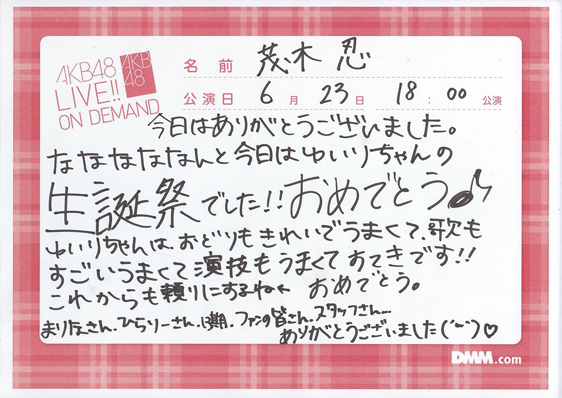 AKB48
LIVE!!
ON DEMAND
AKB
48
名前 茂木 忍
公演日 6月 23日 18:00 公演
今日はありがとうございました。
なななななんと今日はゆいりちゃんの
生誕祭でした!!おめでとう♪
ゆいりちゃんは、おどりもきれいでうまくて、歌も
すごいうまくて演技もうまくておてきです!!
これからも頼りにするねo おめでとう。
まりたさん、ひらりーさん、ファンの皆さん、スタッフさん…
ありがとうございました(´ー`)♡
DMM.com